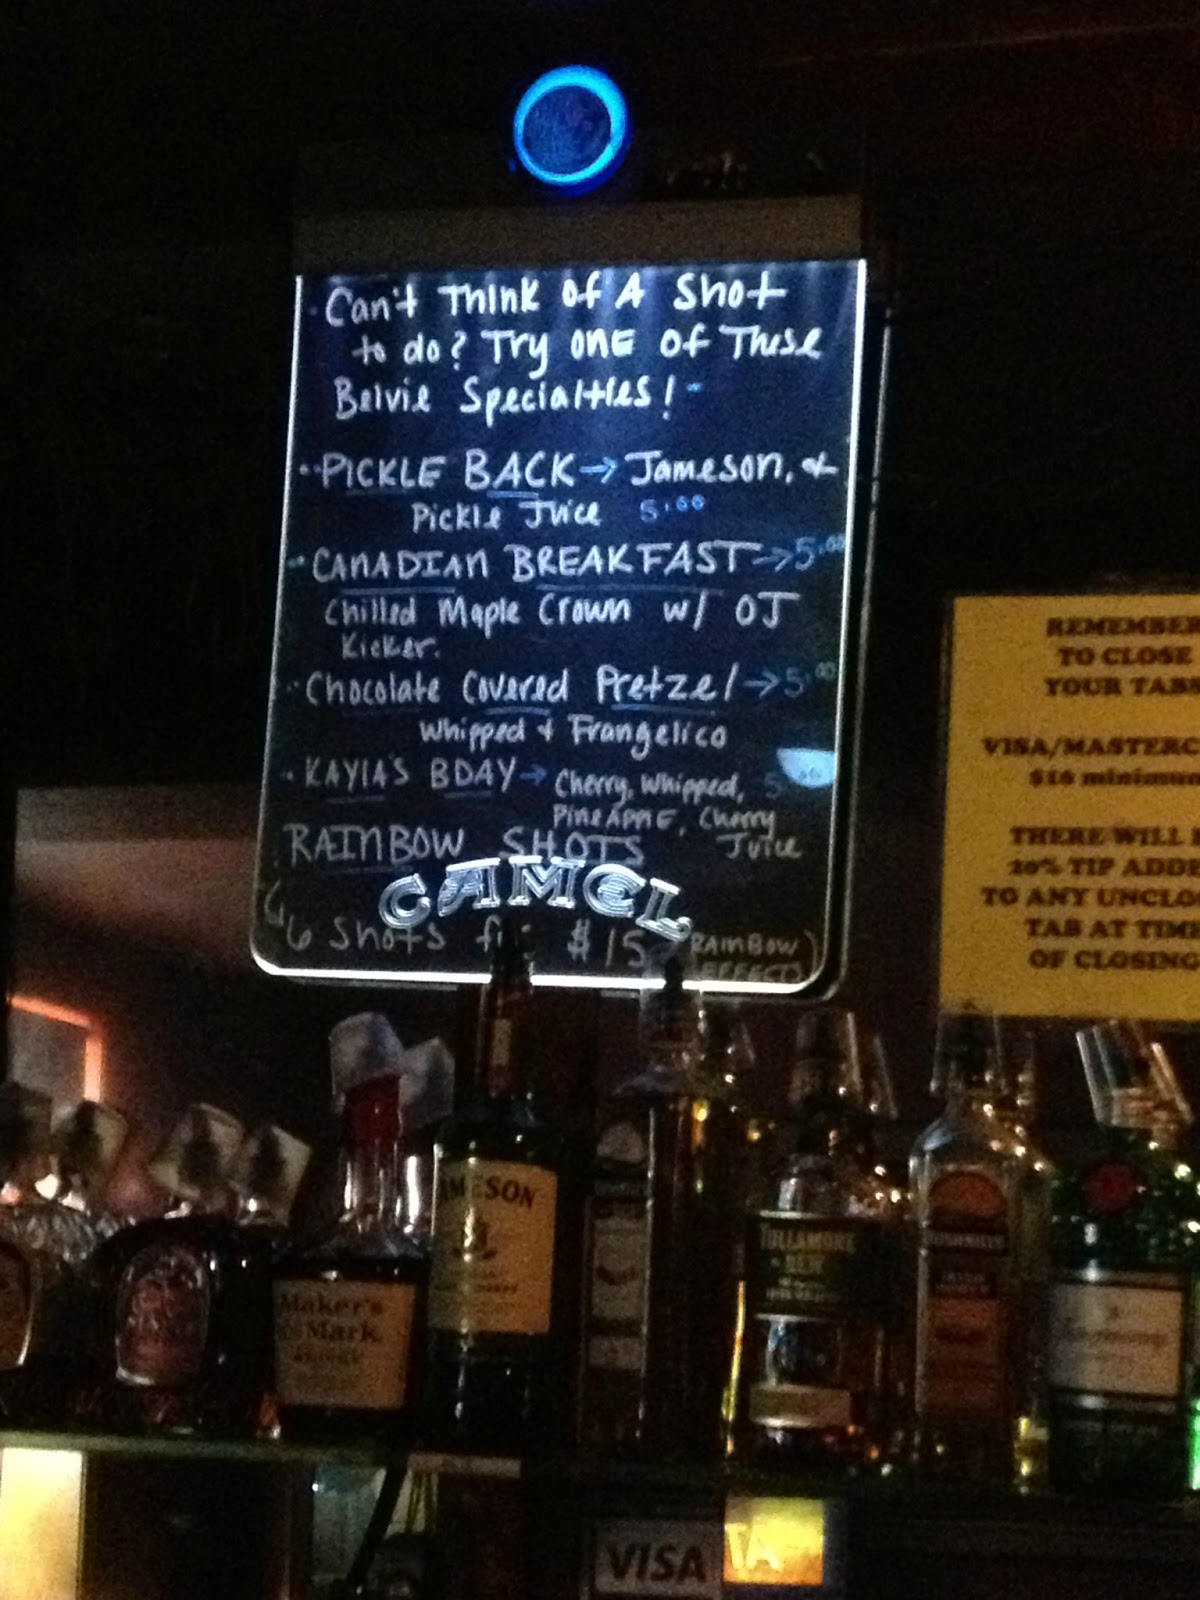 Can't Think of A Shot
to do? Try ONE of These
Belvie Specialties!
PICKLE BACK → Jameson, &
Pickle Juice 5.00
CANADIAN BREAKFAST → 5.00
Chilled Maple Crown w/ OJ
Kicker.
Chocolate Covered Pretzel → 5.00
Whipped & Frangelico
KAYLA'S BDAY → Cherry, Whipped, 5.00
PINEAPPLE, Cherry
RAINBOW SHOTS Juice
CAMEL
6 Shots for $15 (RAINBOW
EFFECT)
REMEMBER
TO CLOSE
YOUR TABS
VISA/MASTERC
$10 minimum
THERE WILL
20% TIP ADDE
TO ANY UNCLO
TAB AT TIME
OF CLOSING
JAMESON
Maker's
Mark
TULLAMORE
DEW
BUSHMILLS
Tanqueray
VISA